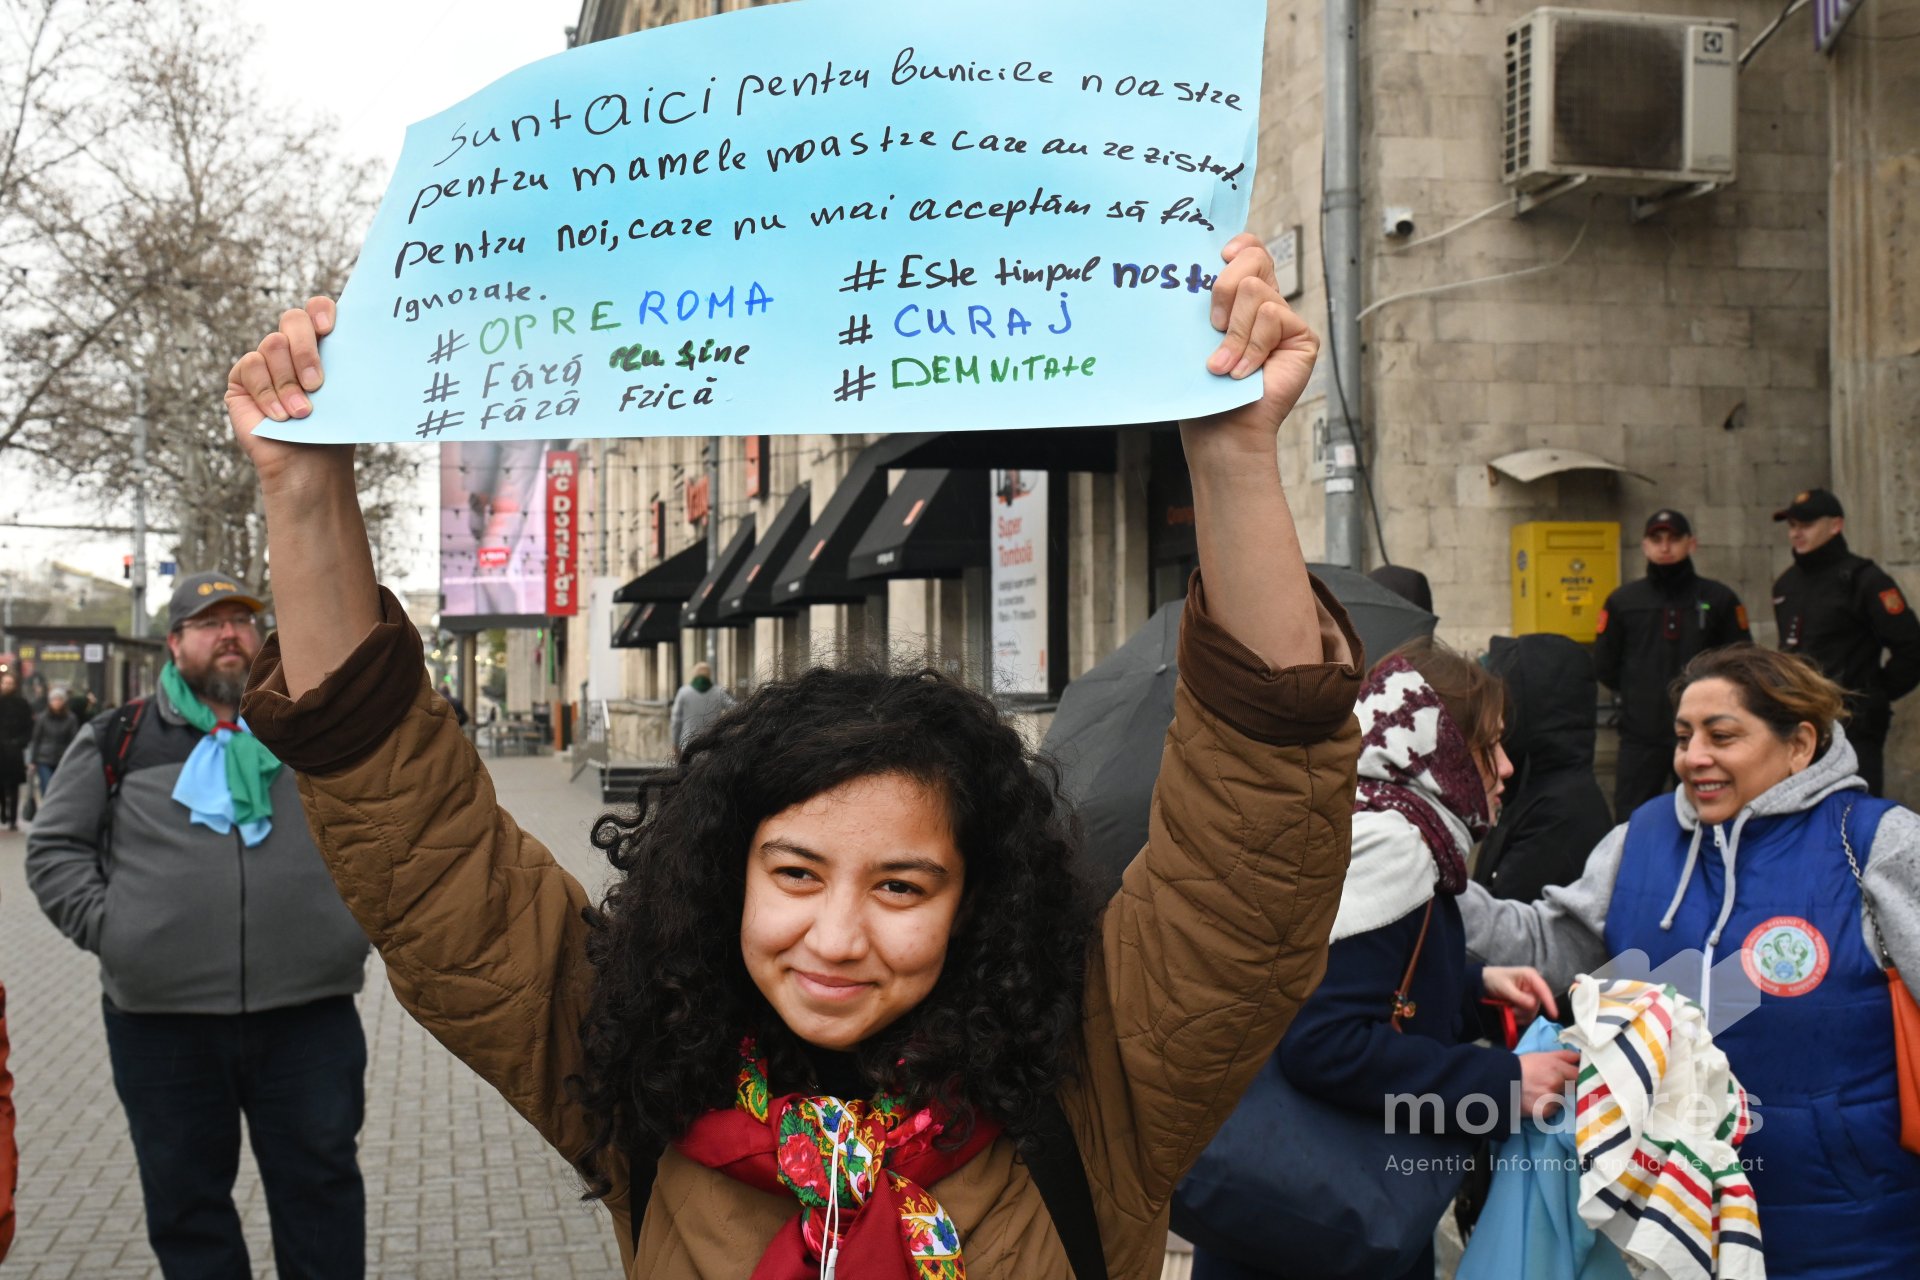 Sunt aici pentru bunicile noastre
pentru mamele noastre care au rezistat.
pentru noi, care nu mai acceptăm să fim
ignorate.
# OPRE ROMA
# Fără rușine
# Fără frică
# Este timpul nostru
# CURAJ
# DEMNITATE
McDonald's
Super
Tombolă
POȘTA
moldpres
Agenția Informațională de Stat